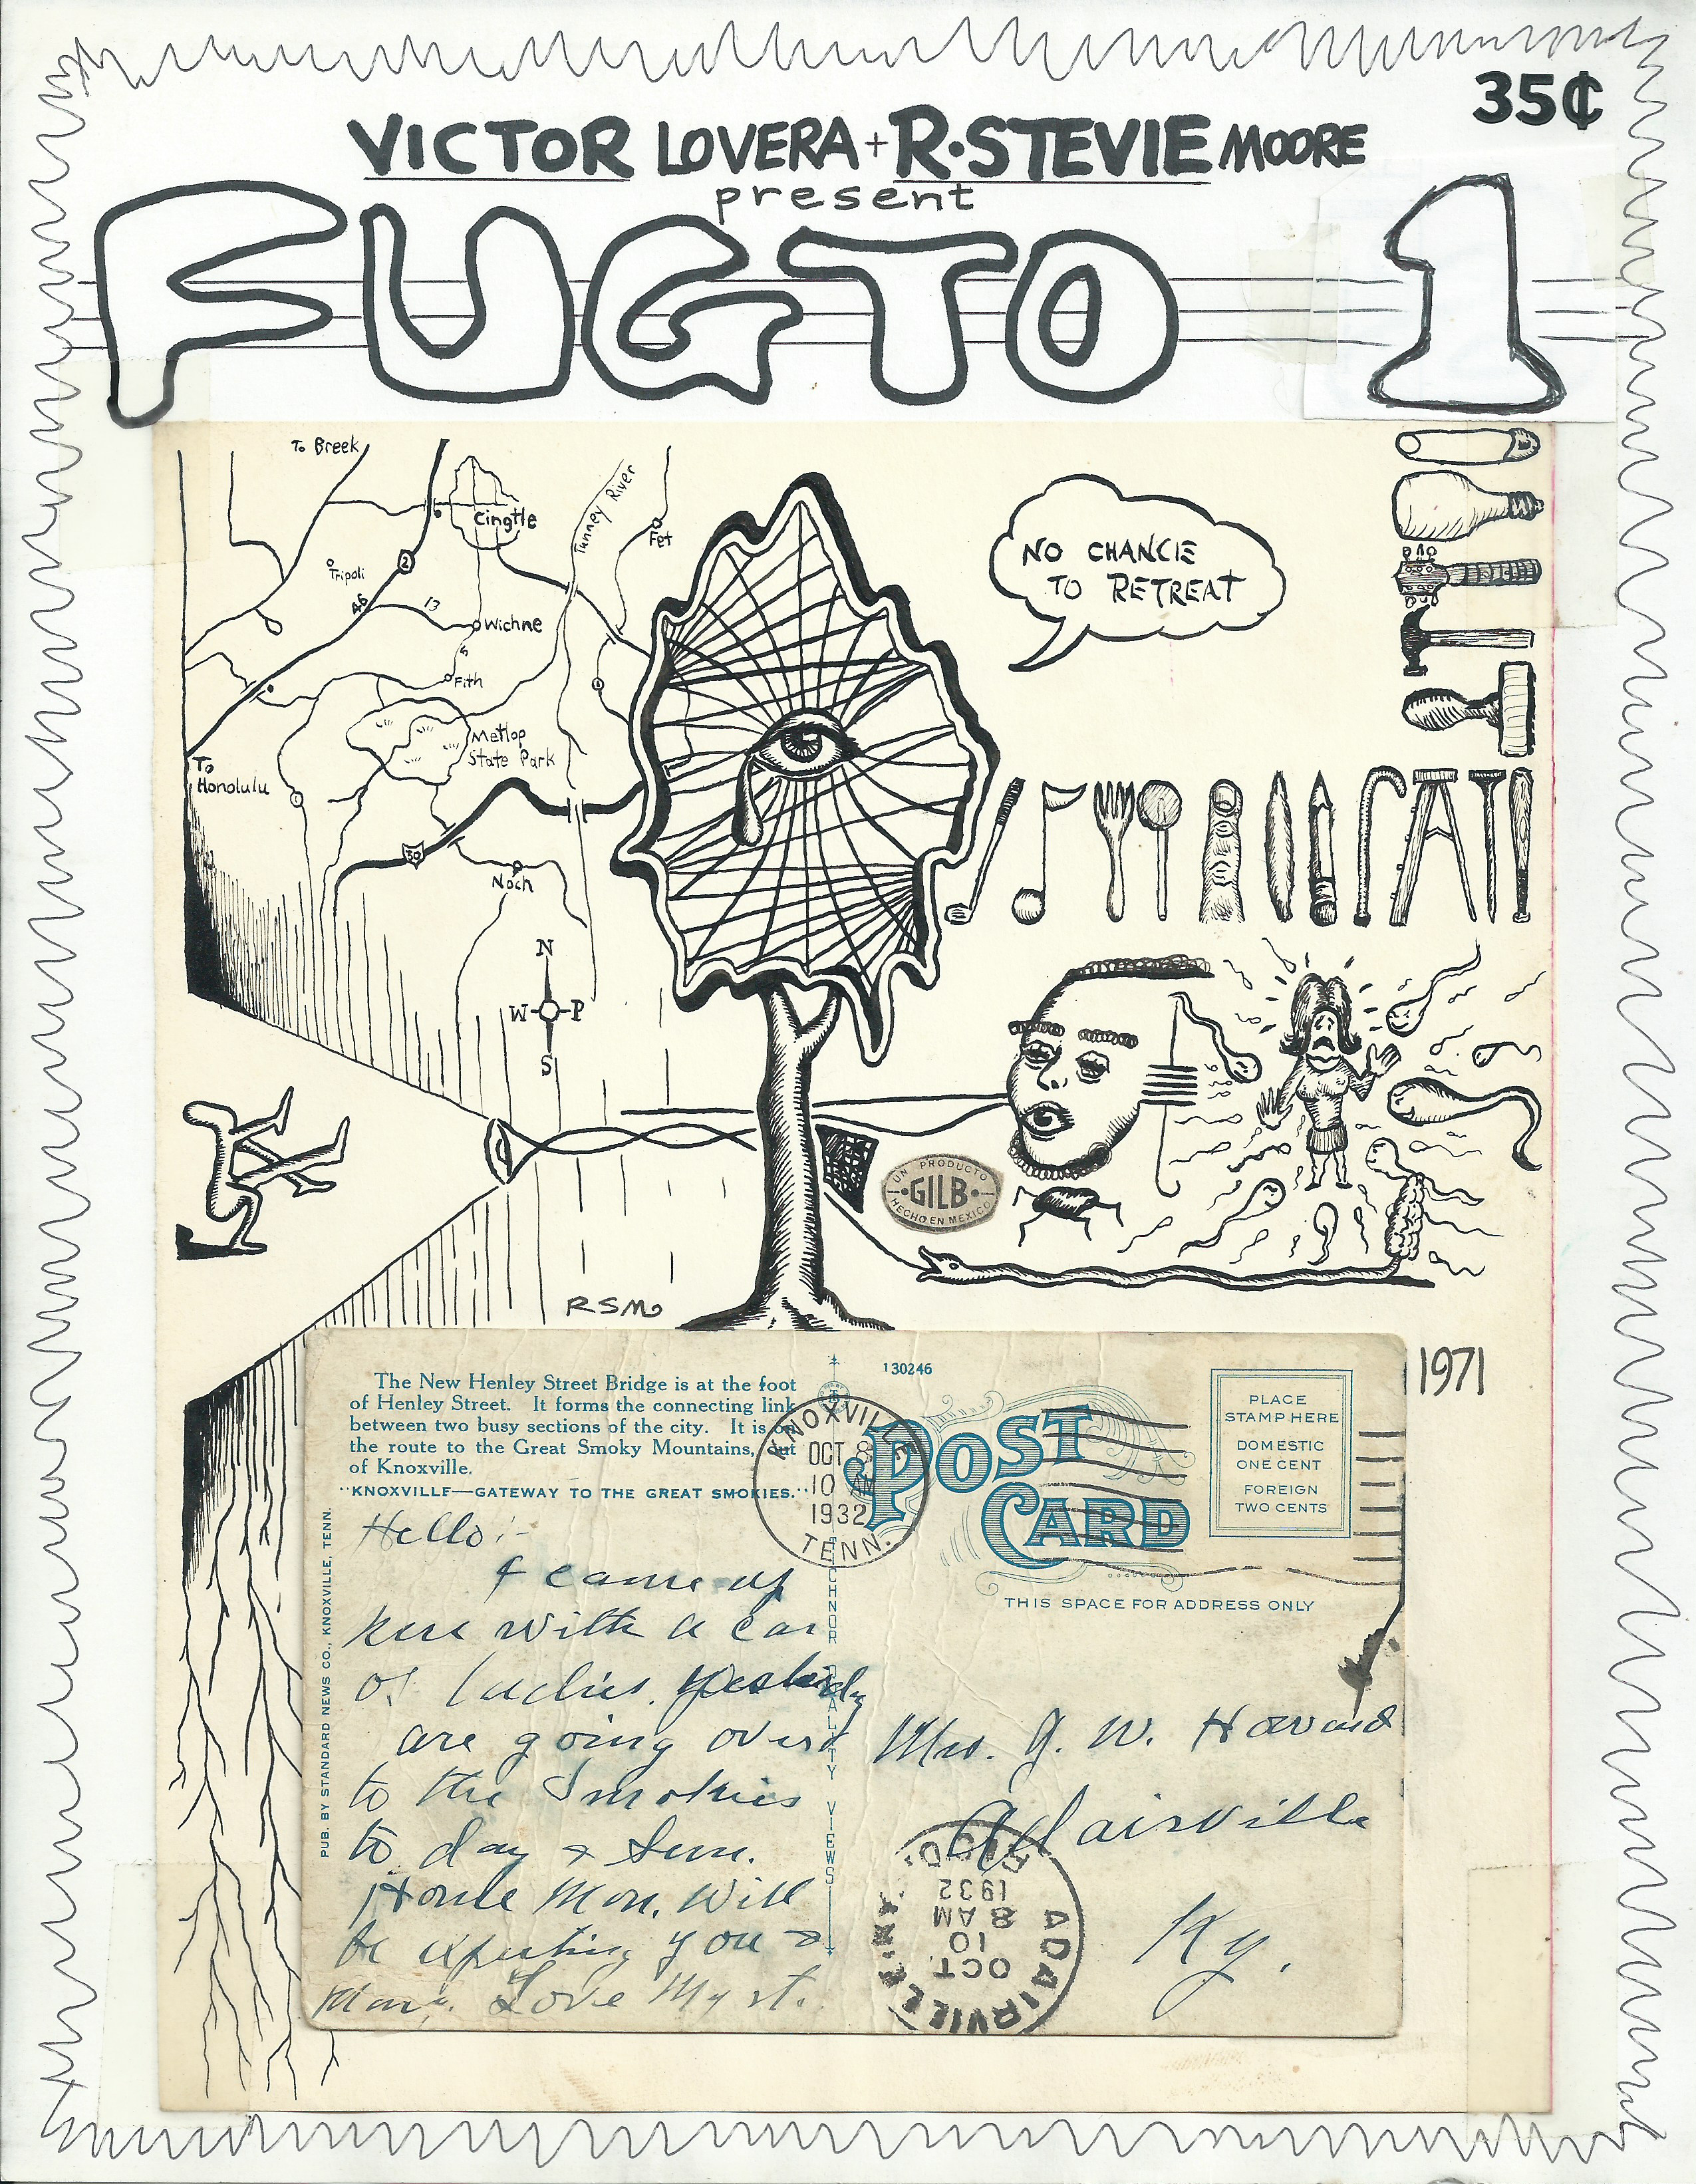 35¢
VICTOR LOVERA + R. STEVIE MOORE
present
FUGTO 1
To Breek
Cingtle
Tunney River
Fet
Tripoli
2
46
13
Wichne
Fith
Metlop
State Park
To
Honolulu
30
Noch
N
W P
S
NO CHANCE
TO RETREAT
UN PRODUCTO
GILB
HECHO EN MEXICO
RSM
1971
The New Henley Street Bridge is at the foot
of Henley Street. It forms the connecting link
between two busy sections of the city. It is on
the route to the Great Smoky Mountains, out
of Knoxville.
KNOXVILLE—GATEWAY TO THE GREAT SMOKIES.
130246
KNOXVILLE
OCT 8
10 AM
1932
TENN.
POST
CARD
PLACE
STAMP HERE
DOMESTIC
ONE CENT
FOREIGN
TWO CENTS
THIS SPACE FOR ADDRESS ONLY
PUB. BY STANDARD NEWS CO., KNOXVILLE, TENN.
TICHNOR QUALITY VIEWS
Hello:-
I came up
here with a car
of ladies. Yesterday
are going over
to the Smokies
to day & Sun.
Home Mon. Will
be expecting you &
Love
Mrs. G. W. Howard
Adairville
Ky.
ADAIRVILLE
OCT
10
8 AM
1932